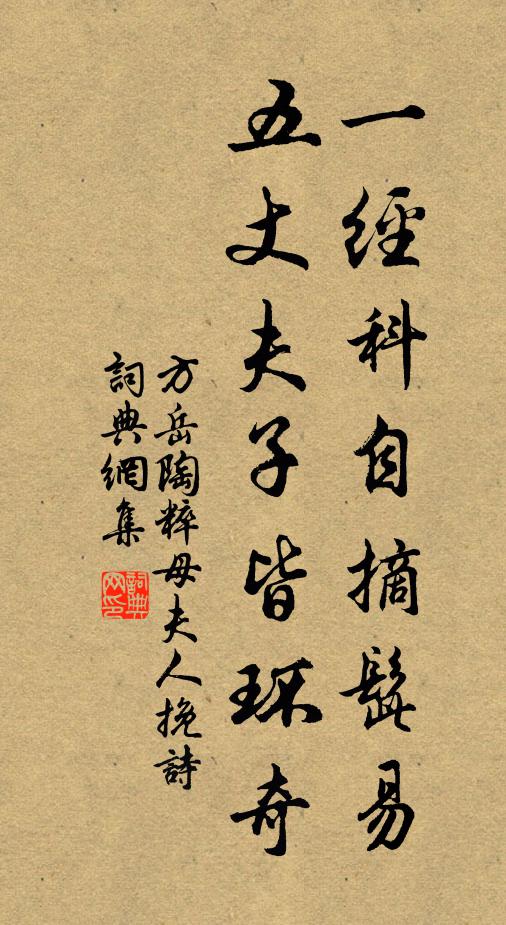 一經科自摘髭易
五丈夫子皆环奇
方岳陶粹母夫人挽詩
詞典網集
詞典网印